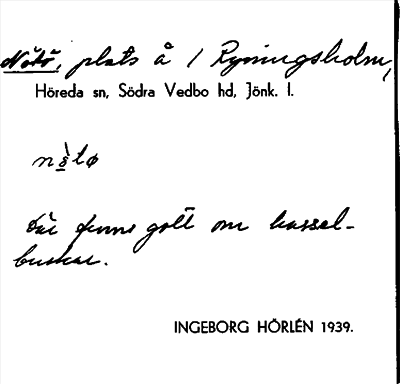 Nötö, plats å 1 Ryningsholm,
Höreda sn, Södra Vedbo hd, Jönk. l.
nø̀tø
Där finns gott om hassel-
buskar.
INGEBORG HÖRLÉN 1939.